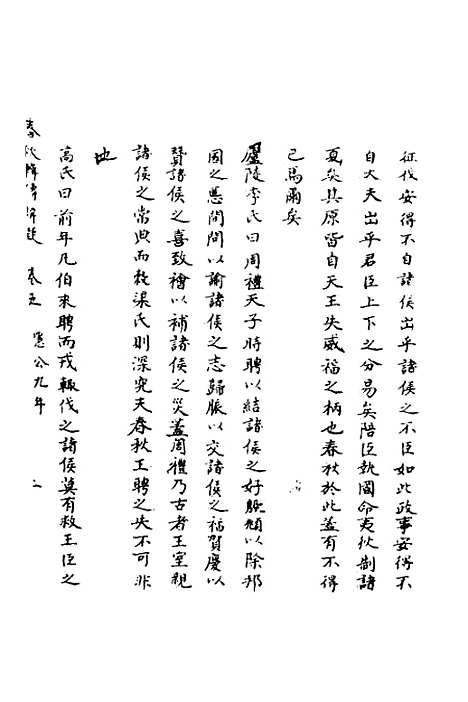 征伐安得不自諸侯出乎諸侯之不臣如此政事安得不
自大夫出乎君臣上下之分易矣陪臣執國命夷狄制諸
夏矣其原皆自天王失威福之柄也春秋於此蓋有不得
已焉爾矣
廬陵李氏曰周禮天子時聘以結諸侯之好殷頫以除邦
國之慝間問以諭諸侯之志歸脤以交諸侯之福賀慶以
贊諸侯之喜致禬以補諸侯之災蓋周禮乃古者王室親
諸侯之常典而穀梁氏則深究夫春秋王聘之失不可非
也
高氏曰前年凡伯來聘而戎輒伐之諸侯莫有救王臣之
卷五 隱公九年